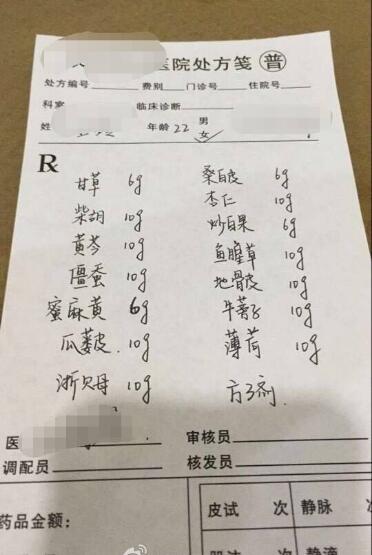 医院处方笺 普
处方编号 费别 门诊号 住院号
科室 临床诊断
姓 年龄 22 男 女
R
甘草 6g 桑白皮 6g
柴胡 10g 杏仁 10g
黄芩 10g 炒白果 6g
僵蚕 10g 鱼腥草 10g
蜜麻黄 6g 地骨皮 10g
瓜蒌皮. 10g 牛蒡子 10g
浙贝母 10g 薄荷 10g
医 审核员
调配员 核发员
药品金额： 皮试 次 静脉 次
次 静滴